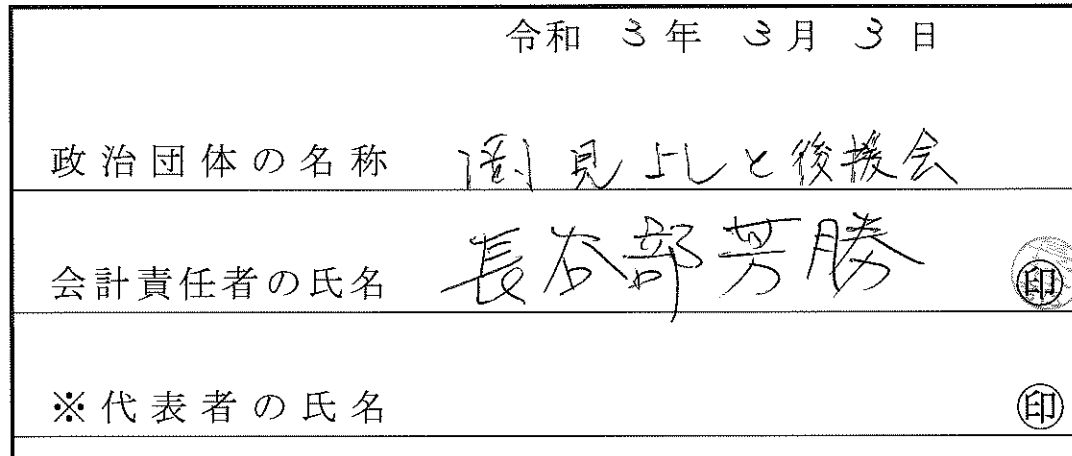 令和 3年 3月 3日
政治団体の名称 見よしと後援会
会計責任者の氏名 長谷部芳勝 ㊞
※代表者の氏名 ㊞